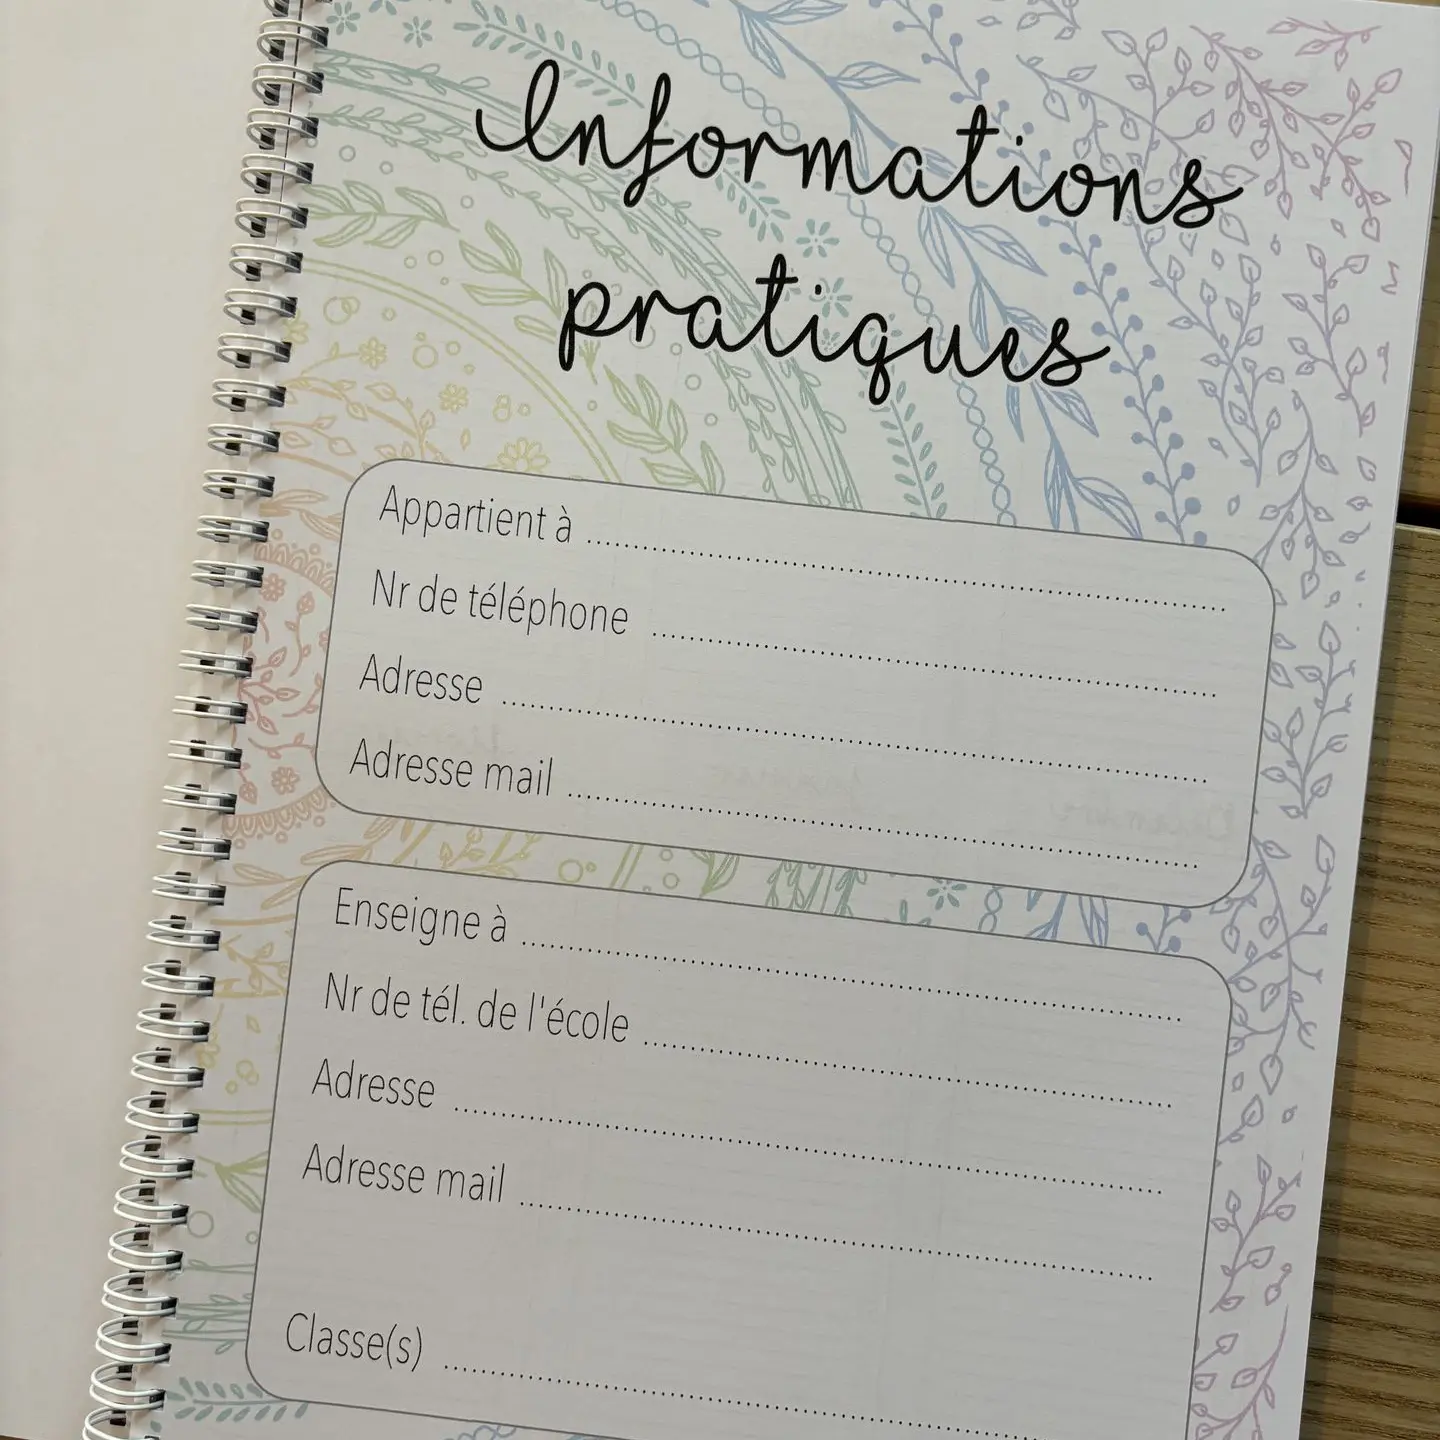 Informations
pratiques
Appartient à
Nr de téléphone
Adresse
Adresse mail
Enseigne à
Nr de tél. de l'école
Adresse
Adresse mail
Classe(s)